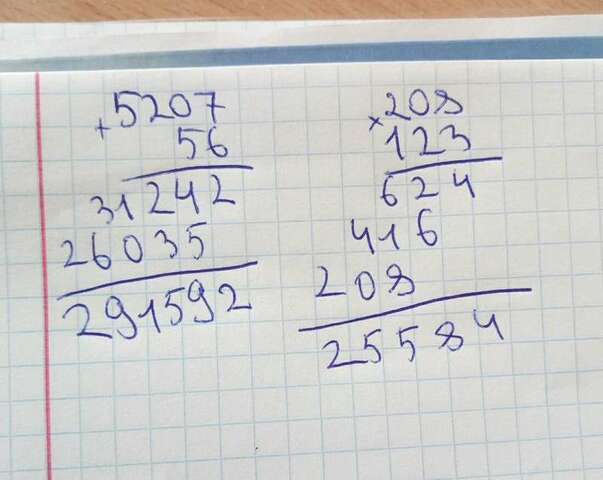 + 5207
56
31242
26035
291592
× 208
123
624
416
208
25584